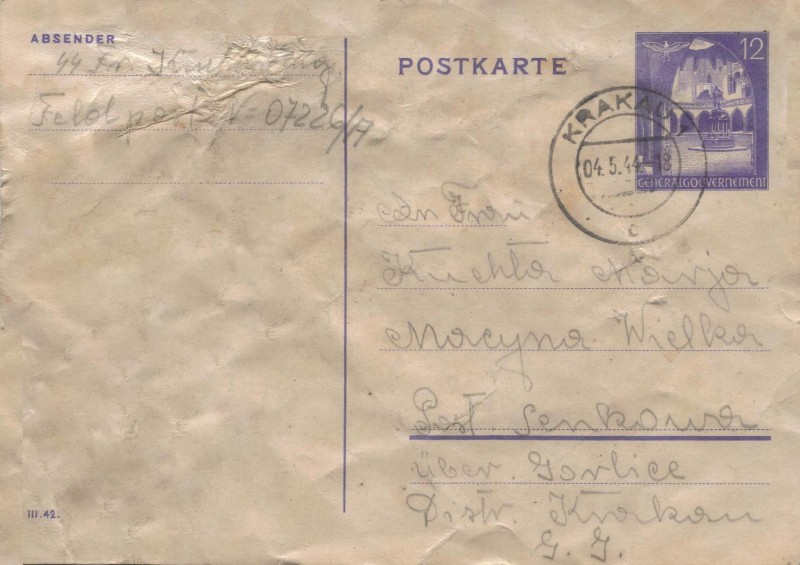 ABSENDER
44
Feldpost N= 07226/A
III.42.
POSTKARTE
12
GENERALGOUVERNEMENT
KRAKAU
04.5.44
c
An Frau
Kuchta Marja
Macyna Wielka
Post. Senkowa
über. Gorlice
Distr. Krakau
G. G.